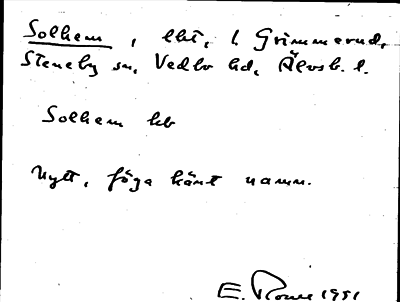 Solhem, lht, 1 Grimmerud,
Steneby sn, Vedbo hd, Älvsb. l.
Solhem kb
Nytt, föga känt namn.
E. 1951